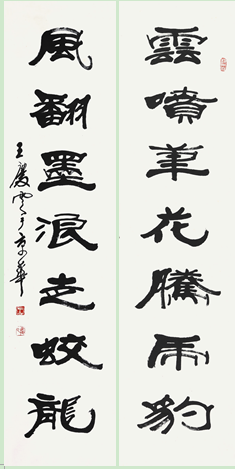 雲噴筆花騰虎豹
風翻墨浪走蛟龍
王慶雲于京華